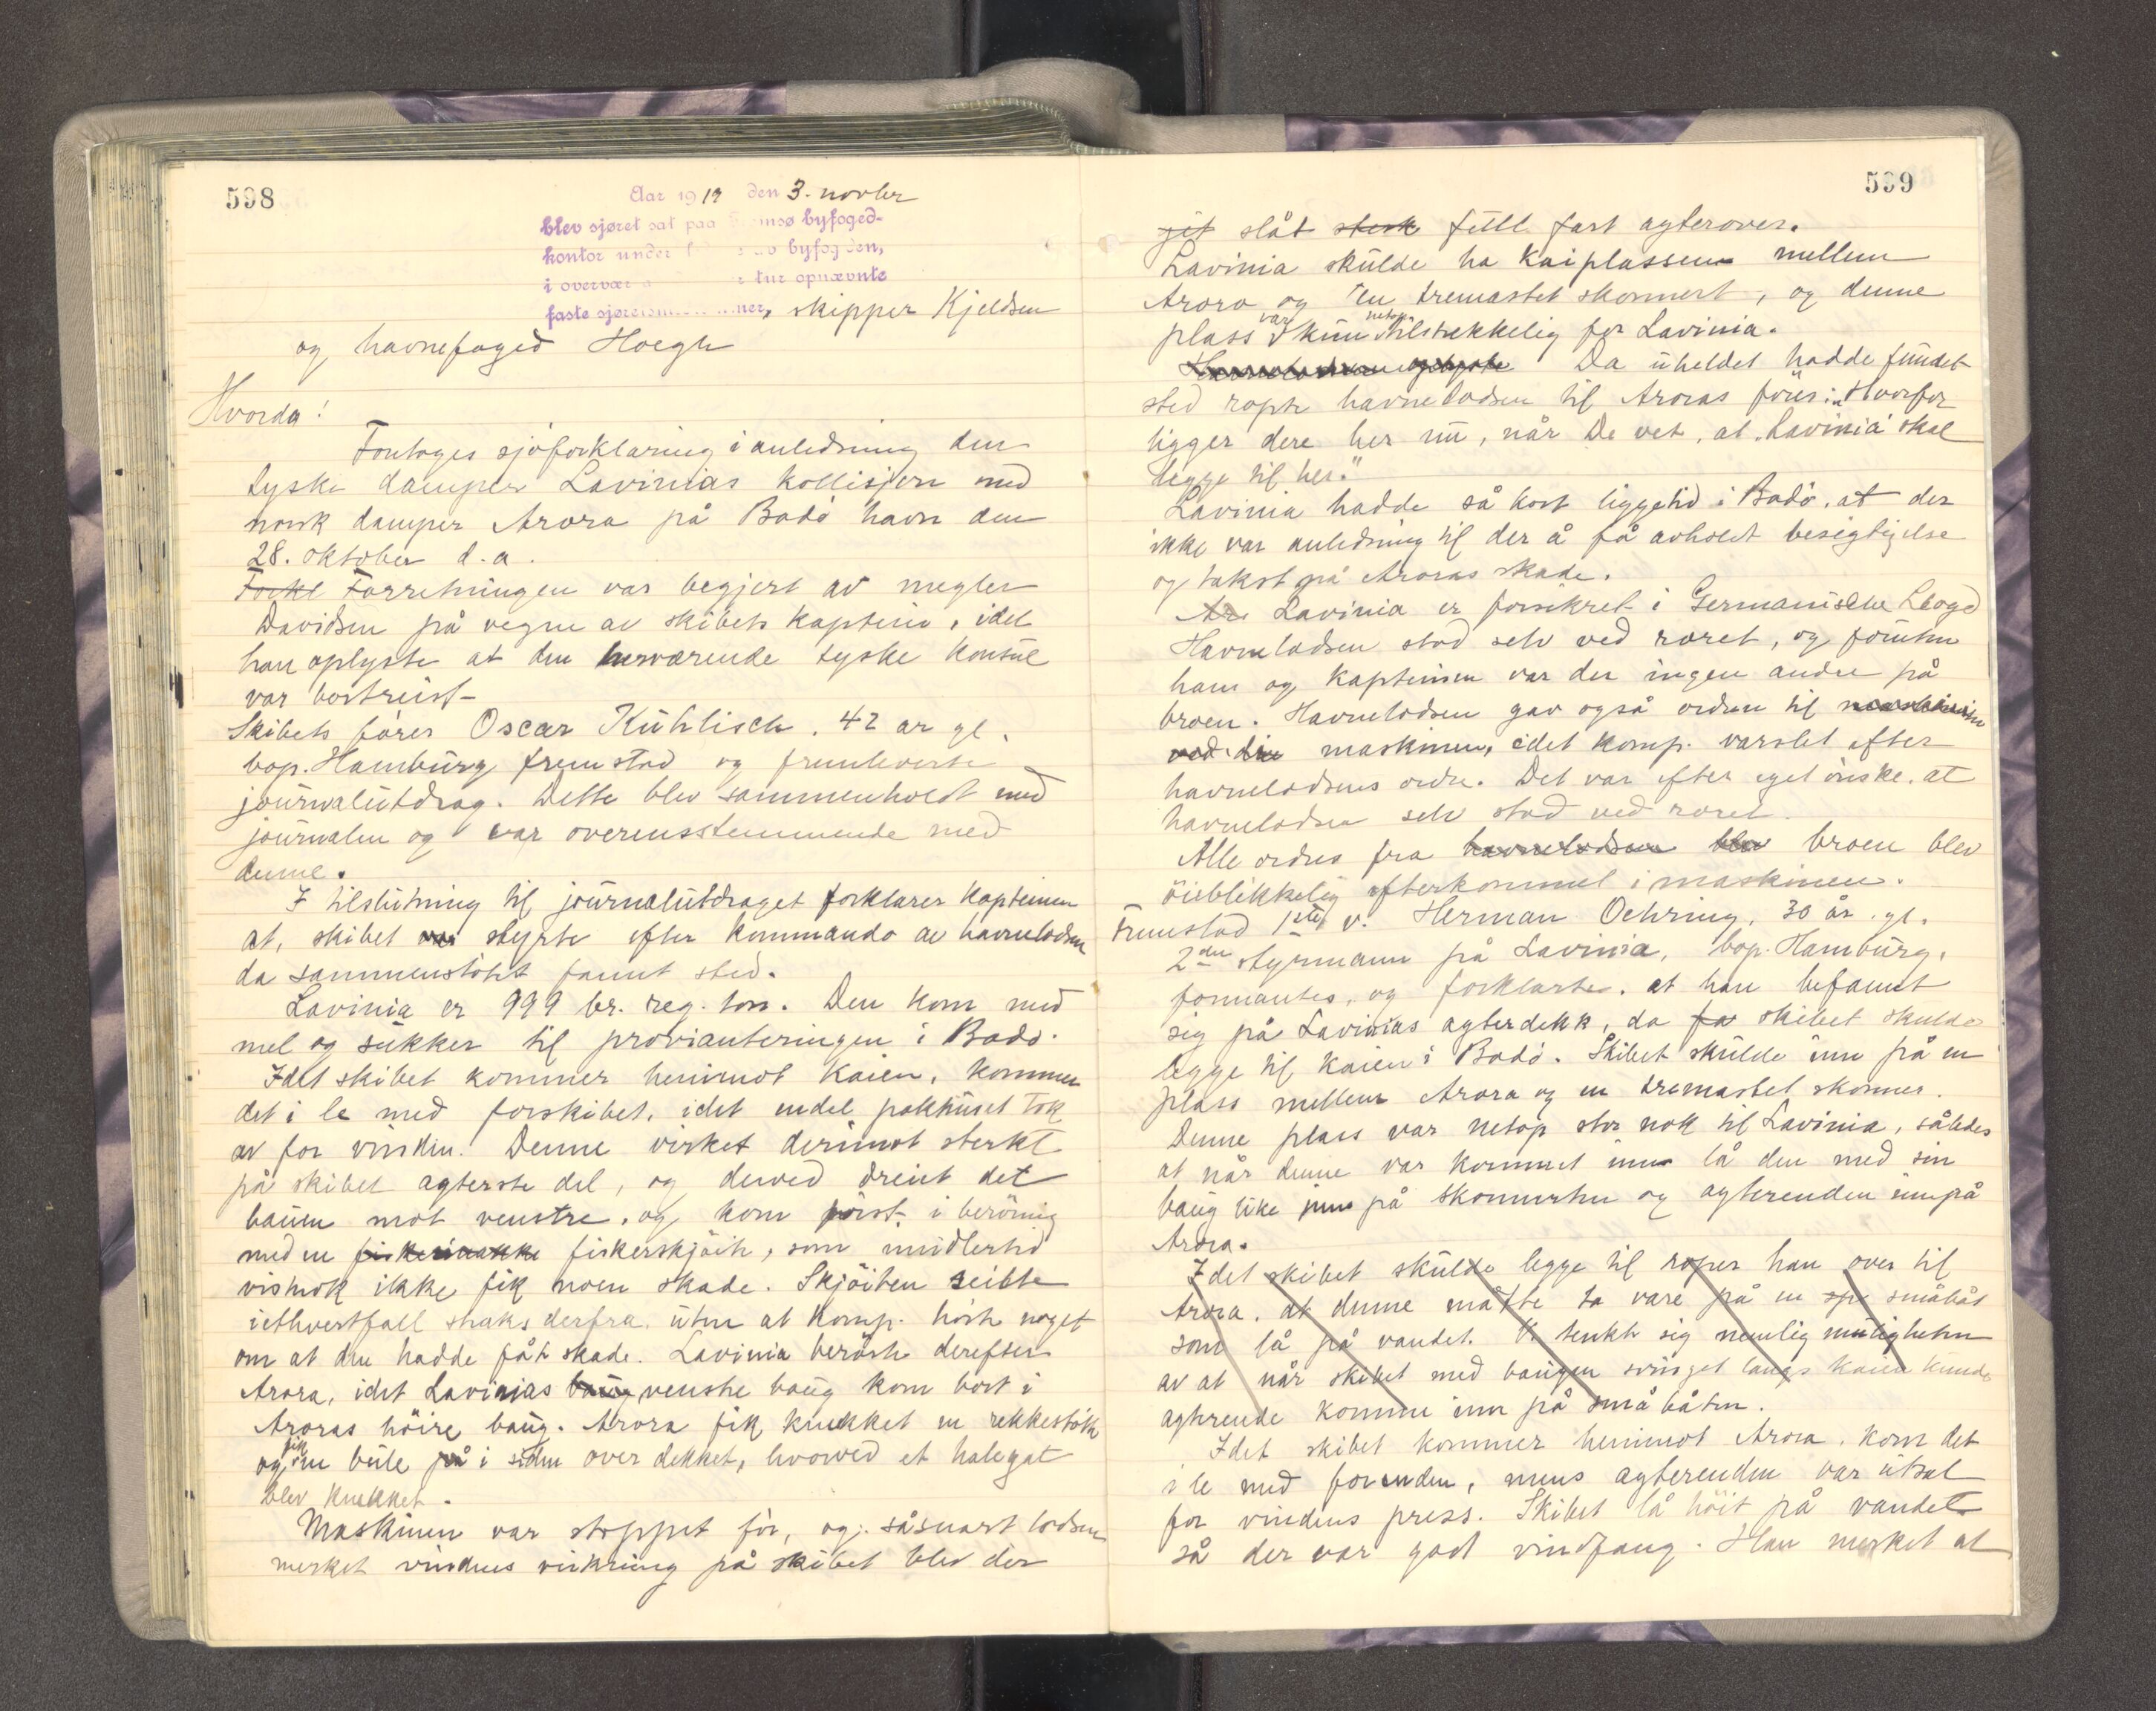 598
Aar 1919 den 3. novbr
blev sjøret sat paa Tromsø byfoged-
kontor under av byfogden,
i overvær tur opnævnte
faste sjøretsm ner, skipper Kjeldsen
og havnefoged Hoegh
Hvorda!
Foretoges sjøforklaring i anledning den
tyske damper Lavinias kollisjon med
norsk damper Arora på Bodö havn den
28. oktober d.a.
Forkl Forretningen var begjert av megler
Davidsen på vegne av skibets kaptein, idet
han oplyste at den herværende tyske konsul
var bortreist-
Skibets förer Oscar Kühlisch. 42 ar gl.
bop. Hamburg fremstod og fremleverte
journalutdrag. Dette blev sammenholdt med
journalen og var overensstemmende med
denne.
I tilslutning til journalutdraget forklarer kapteinen
at, skibet var styrte efter kommando av havnelodsen
da sammenstötet fannt sted.
Lavinia er 999 br. reg. ton. Den kom med
mel og sukker til provianteringen i Bodö.
Idet skibet kommer henimot kaien, kommer
det i le med forskibet, idet endel pakhuset tok
av for vinden. Denne virket derimot sterkt
på skibet agterste del, og derved dreiet det
bauen mot venstre, og kom först i beröring
med en fiskerinakke fiskerskjöite, som imidlertid
visnok ikke fik noen skade. Skjöiten seilte
iethvertfall straks derfra, uten at komp. hörte noget
om at den hadde fåt skade. Lavinia berörte derefter
Arora, idet Lavinias baug venstre baug kom bort i
Aroras höire baug. Arora fik knekket en rekkestötte
og fik en bule på i siden over dekket, hvorved et halegat
blev knekket.
Maskinen var stoppet för, og såsnart lodsen
merket vindens virkning på skibet blev der
599
git slåt sterk full fart agterover.
Lavinia skulde ha kaiplassen mellem
Arora og en tremastet skonnert, og denne
plass var kun netop tilstrekkelig for Lavinia.
Da uheldet hadde fundet
sted ropte havnelodsen til Aroras förer: "Hvorfor
ligger dere her nu, når De vet, at "Lavinia" skal
legge til her."
Lavinia hadde så kort liggetid i Bodö, at der
ikke var anledning til der å få avholdt besigtigelse
og takst på Aroras skade.
Ar Lavinia er forsikret i Germanische Lloyd
Havnelodsen stod selv ved roret, og foruten
ham og kapteinen var der ingen andre på
broen. Havnelodsen gav også ordren til maskinen
ved maskinen, idet komp. varslet efter
havnelodsens ordre. Det var efter eget önske, at
havnelodsen selv stod ved roret.
Alle ordres fra havnelodsen blev broen blev
öieblikkelig efterkommet i maskinen.
Fremstod 1ste v. Herman Oehring, 30 år. gl.
2den styrmann på Lavinia, bop. Hamburg,
formantes, og forklarte, at han befannt
sig på Lavinias agterdekk, da fa skibet skulde
legge til kaien i Bodö. Skibet skulde inn på en
plass mellem Arora og en tremastet skonner.
Denne plass var netop stor nok til Lavinia, således
at når denne var kommet inn lå den med sin
baug like inn på skonnerten og agterenden innpå
Arora.
Idet skibet skulde legge til roper han over til
Arora, at denne måtte ta vare på en spe småbåt
som lå på vandet. Vi tenkte sig nemlig muligheten
av at når skibet med baugen svinget langs kaien kunde
agterende komme inn på småbåten.
Idet skibet kommer henimot Arora, kom det
i le med forenden, mens agterenden var utsat
for vindens press. Skibet lå höit på vandet
så der var god vindfang. Han merket at